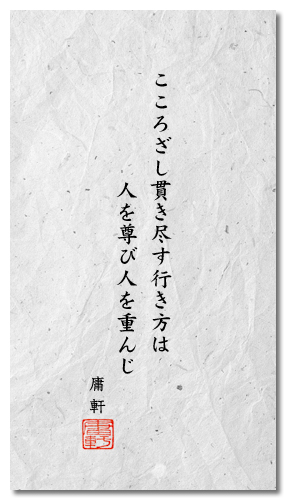 こころざし貫き尽す行き方は
人を尊び人を重んじ
庸軒